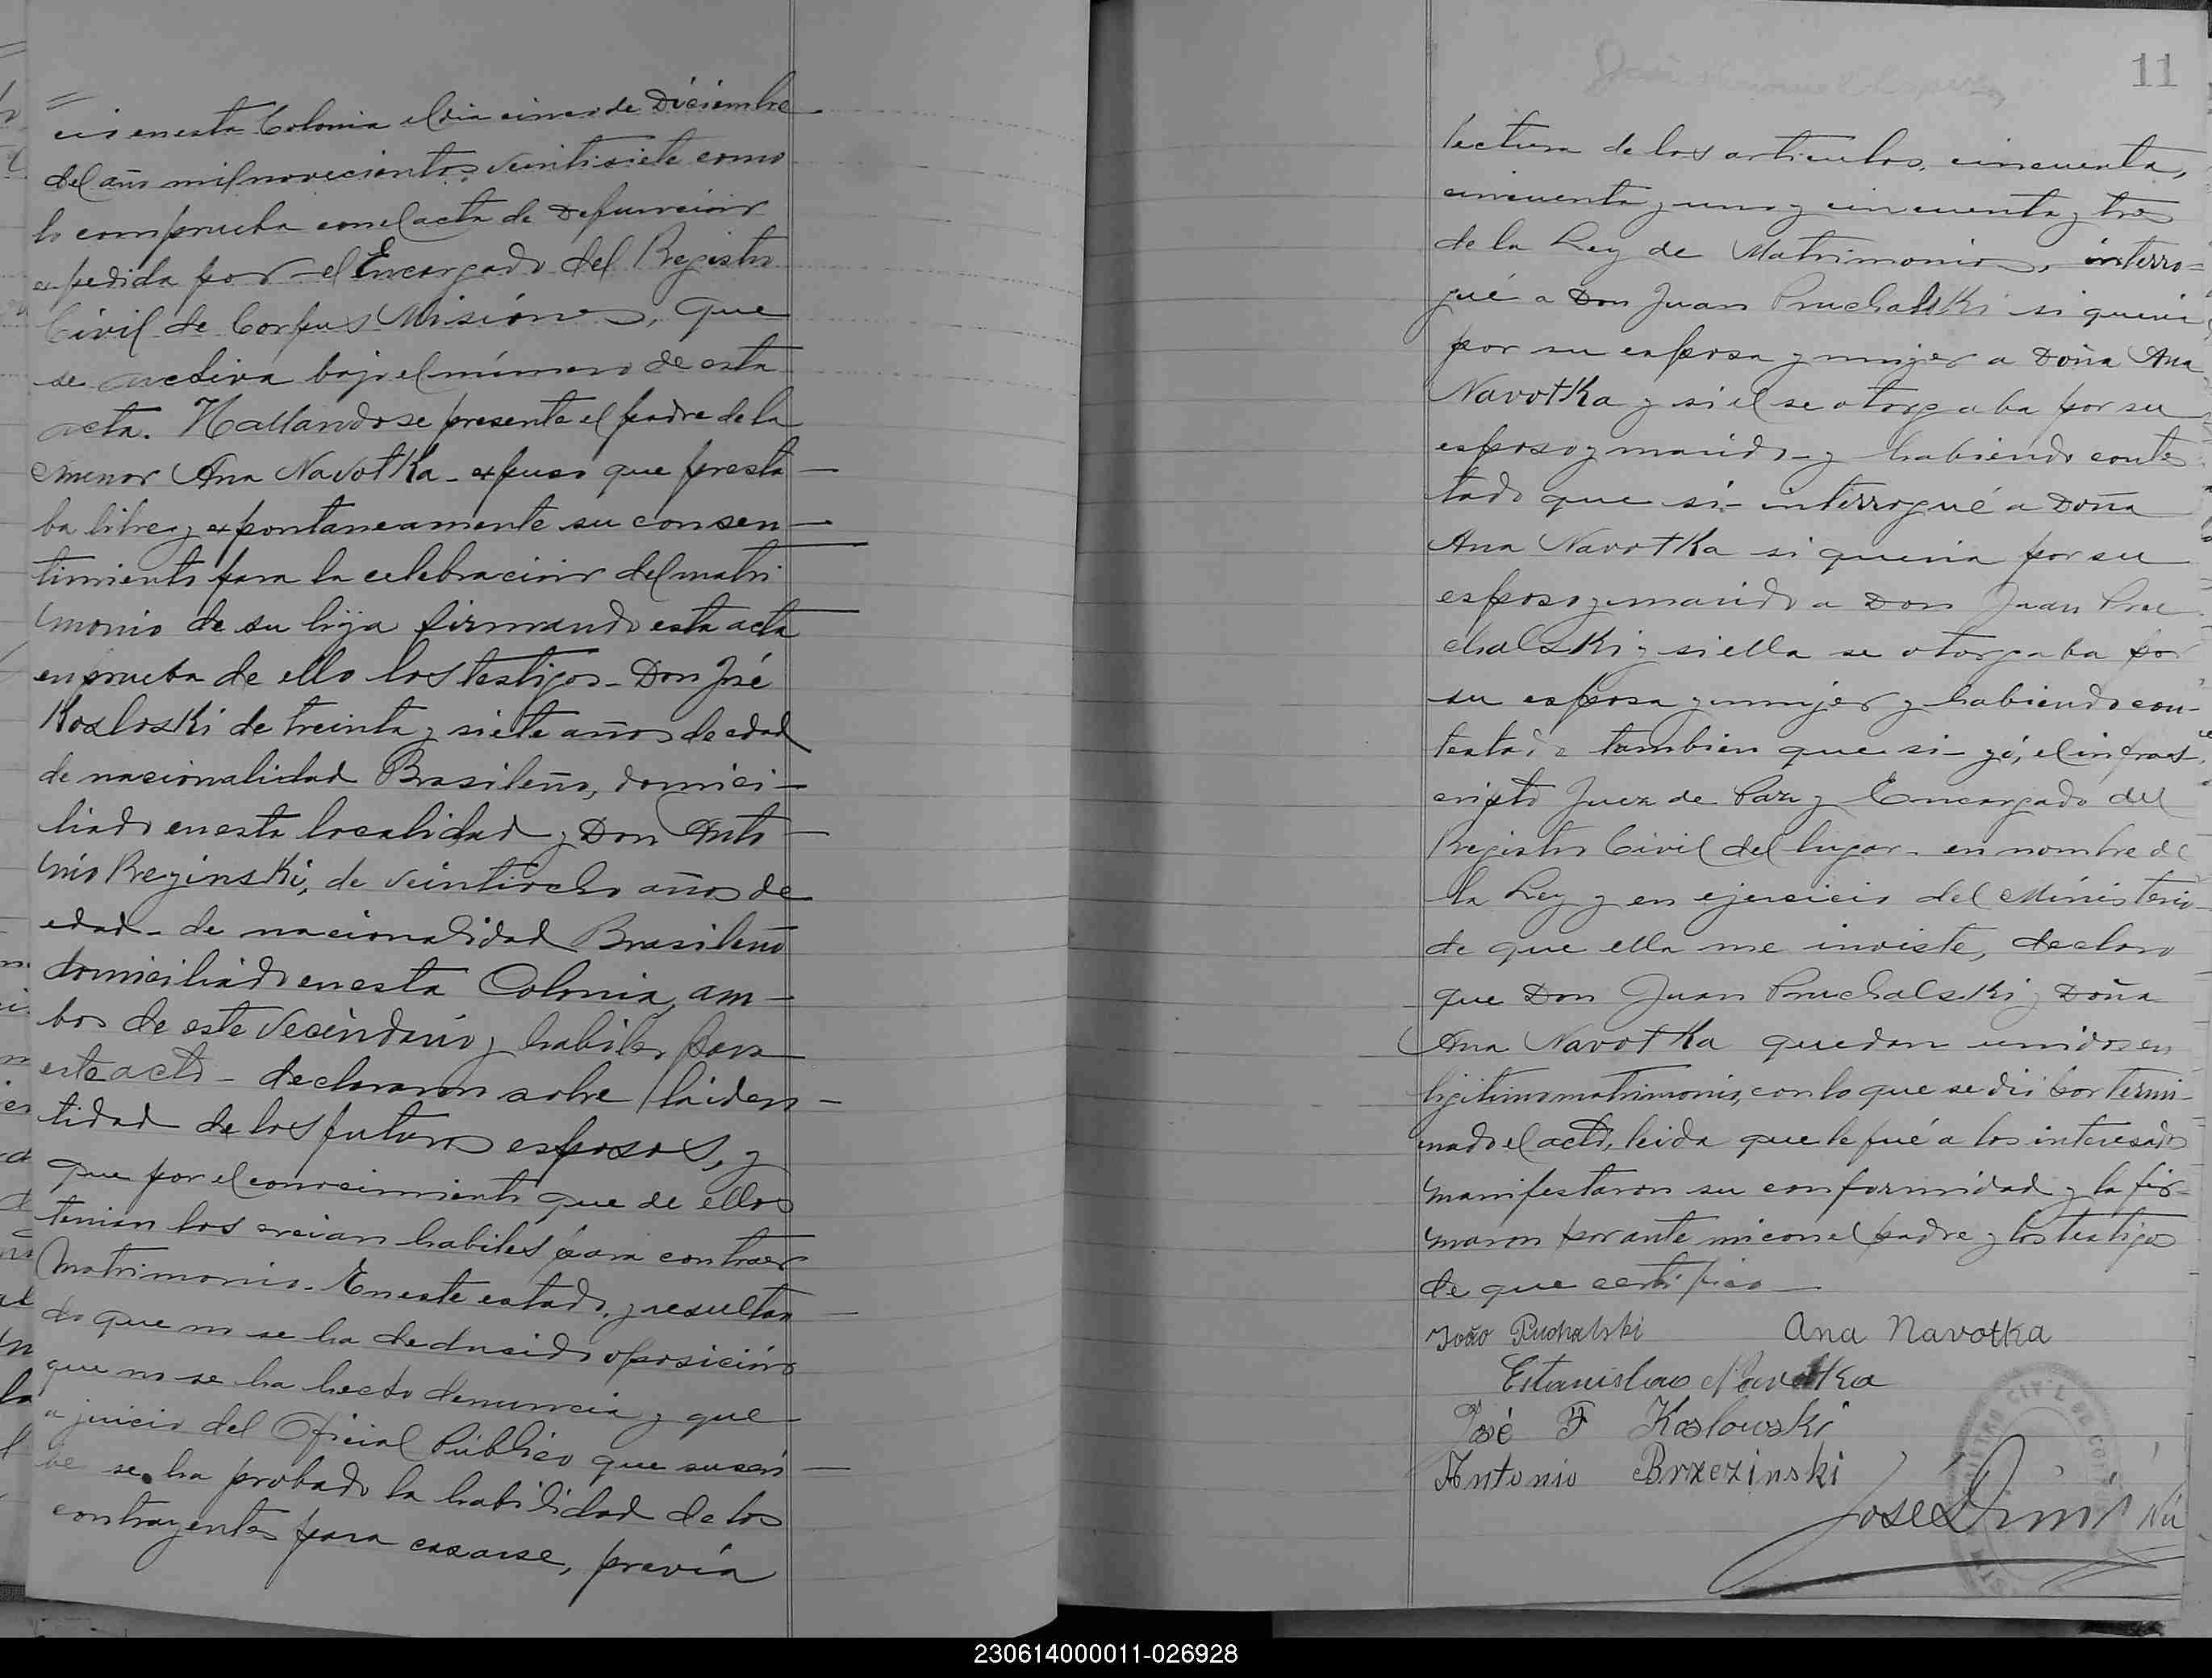 cio en esta Colonia el dia cinco de Diciembre
del año mil novecientos veintisiete como
lo comprueba con el acta de Defuncion
expedida por el Encargado del Registro
Civil de Corpus Misiones, que
se archiva bajo el número de esta
acta. Hallandose presente el padre de la
menor Ana Navotka - expuso que presta
ba libre y expontaneamente su consen-
timiento para la celebracion del matri
monio de su hija firmando esta acta
en prueba de ello los testigos - Don José
Kosloski de treinta y siete años de edad
de nacionalidad Brasileño, domici-
liado en esta localidad y Don Anto-
nio Brezinski, de veintiocho años de
edad - de nacionalidad Brasileño
domiciliado en esta Colonia, am-
bos de este vecindario y habiles para
este acto - declararon sobre la iden-
tidad de los futuros esposos, y
que por el conocimiento que de ellos
tenian los creian habiles para contraer
Matrimonio. En este estado, y resultan-
do que no se ha deducido oposición
que no se ha hecho denuncia y que
a juicio del Oficial Público que suscri-
be se ha probado la habilidad de los
contrayentes para casarse, previa
11
lectura de los articulos, cincuenta,
cincuenta y uno y cincuenta y tres
de la Ley de Matrimonio, interro=
gué a Don Juan Pruchalski si queria
por su esposa y mujer a Doña Ana
Navotka y si el se otorgaba por su
esposo y marido - y habiendo contes
tado que si - interrogué a Doña
Ana Navotka si queria por su
esposo y marido a Don Juan Pru
chalski y si ella se otorgaba por
su esposa y mujer y habiendo con-
testado tambien que si - yó, el infraes-
cripto Juez de Paz y Encargado del
Registro Civil del lugar - en nombre de
la Ley y en ejercicio del Ministerio
de que ella me inviste, declaro
que Don Juan Pruchalski y Doña
Ana Navotka quedan unidos en
legitimo matrimonio, con lo que se dió por termi-
nado el acto, leida que le fué a los interesados
manifestaron su conformidad y la fir-
maron por ante mi con el padre y los testigos
de que certifico -
João Puchalski Ana Navotka
Estanislao Navotka
José F Koslowski
Antonio Brzezinski
Jose
230614000011-026928